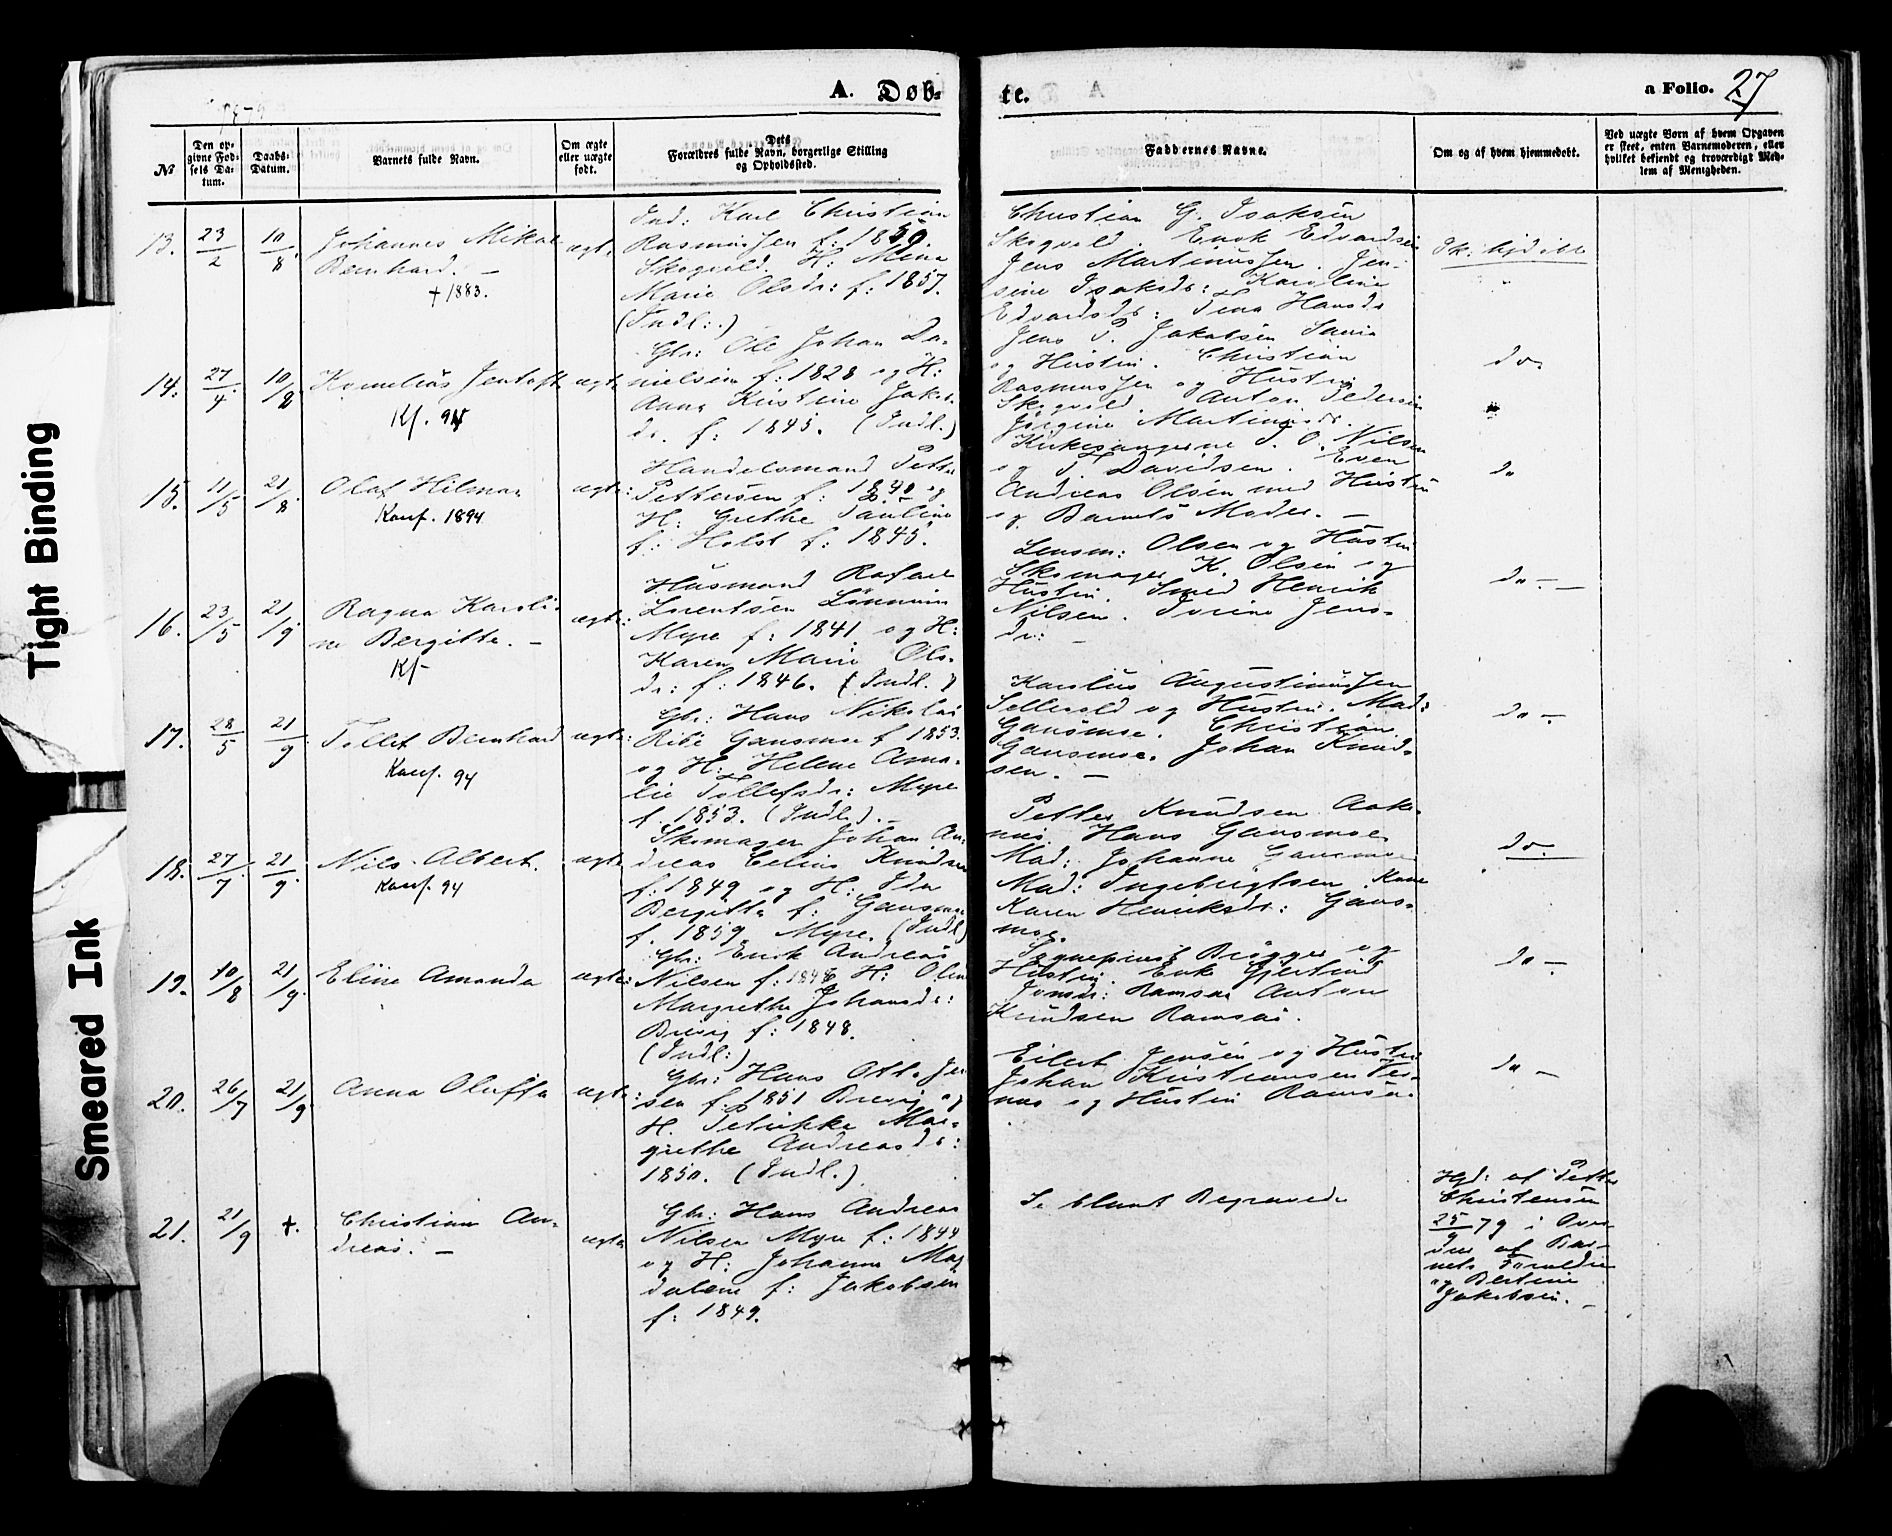 1879
A. Døb-
te.
a Folio. 27
№
Den op-
givne Fød-
sels Da-
tum.
Daabs-
Datum.
Barnets fulde Navn.
Om ægte
eller uægte
født.
Dets
Forældres fulde Navn, borgerlige Stilling
og Opholdssted.
Faddernes Navne.
Om og af hvem hjemmedøbt.
Ved uægte Børn af hvem Opgaven
er skeet, enten Barnemoderen, eller
hvilket bekjendt og troværdigt Med-
lem af Menigheden.
13.
23/2
10/8
Johannes Mikal
Bernhard. —
+ 1883.
ægte
Ind: Karl Christian
Rasmussen f: 1850.
Skogvold. H: Mena
Marie Olsdr: f: 1857.
(Indl:.)
Christian G. Isaksen
Skogvold. Enok Edvardsen
Jens Martinussen. Jen-
sine Isaksdr: Karoline
Edvardsdr: Tina Hansdr
Sk: hjdøbt
14.
27/4
10/8
Kornelius Jentoft
Kf. 95
ægt.
Gbr: Ole Johan Da-
nielsen f: 1828 og H:
Anna Kristine Jakobs-
dr. f: 1845. (Indl.)
Jens P. Jakobsen
og Hustru. Christian
Rasmussen og Hustru
Skogvold. Anton Pedersen
Jørgine Martinusdr.
do
15.
11/5
21/8.
Olaf Hilmar
Konf. 1894
ægte:
Handelsmand Petter
Pettersen f: 1840 og
H: Grethe Pauline
f: Holst f: 1845.
Kirkesangerne P. O. Nilsen
og T Davidsen. Even
Andreas Olsen med Hustru
og Barnets Moder. —
do
16.
23/5
21/9
Ragna Karoli-
ne Bergitte. —
Kf
ægte:
Husmand Rafael
Lorentsen
Myre f: 1841 og H:
Karen Marie Ols-
dr: f: 1846. (Indl.)
Lensm: Olsen og Hustru
Skomager K. Olsen og
Hustru. Smed Henrik
Nilsen. Jens-
dr: —
do —
17.
28/5
21/9
Tollef Bernhard
Konf. 94
ægte:
Gbr: Hans Nikolai
Ribe Gansmoe f 1853.
og H: Helene Ama-
lie Tollefsdr: Myre
f. 1853. (Indl.). —
Karolius Augustinussen
Sellevold og Hustru. Mad:
Gansmoe. Christian
Gansmoe. Johan Knud-
sen. —
do —
18.
27/7.
21/9.
Nils Albert.
Konf. 94
ægte
Skomager Johan An-
dreas Celius Knudsen
f: 1849 og H: Ida
Bergitte f: Gansmoe
f. 1859 Myre. (Indl)
Petter Knudsen Aake-
nes Hans Gansmoe
Mad: Johanne Gansmoe
Mad: Ingebrigtsen. Kone
Karen Henriksdr: Gans-
moe.
do.
19.
10/8
21/9.
Eline Amanda
ægte:
Gbr: Enok Andreas
Nilsen f: 1848 H: Oline
Margrethe Johansdr:
Brevig f: 1848.
(Indl:)
Sognepræst Brøgger og
Hustru. Enk Gjertrud
Jonsdr: Ramsaa Anton
Knudsen Ramsaa.
do —
20.
26/7
21/9
Anna Oluffa
ægte:
Gbr: Hans Otto Jen
sen f: 1851 Brevig og
H. Petrikke Mar-
grethe Andreasdr:
1850. (Indl.).
Eilert Jensen og Hustru
Johan Kristiansen
nes og Hustru Ramsaa.
do —
21.
21/9
+.
Christian An-
dreas. —
ægte
Gbr: Hans Andreas
Nilsen Myre f: 1844
og H: Johanne Mag
dalene f: Jakobsen
f: 1849.
Se blandt Begravede
Hjd: af Petter
Christensen
25/9 79 i Over-
vær af Bar-
nets Forældre
og Bertine
Jakobsen. —
Tight Binding
Smeared Ink